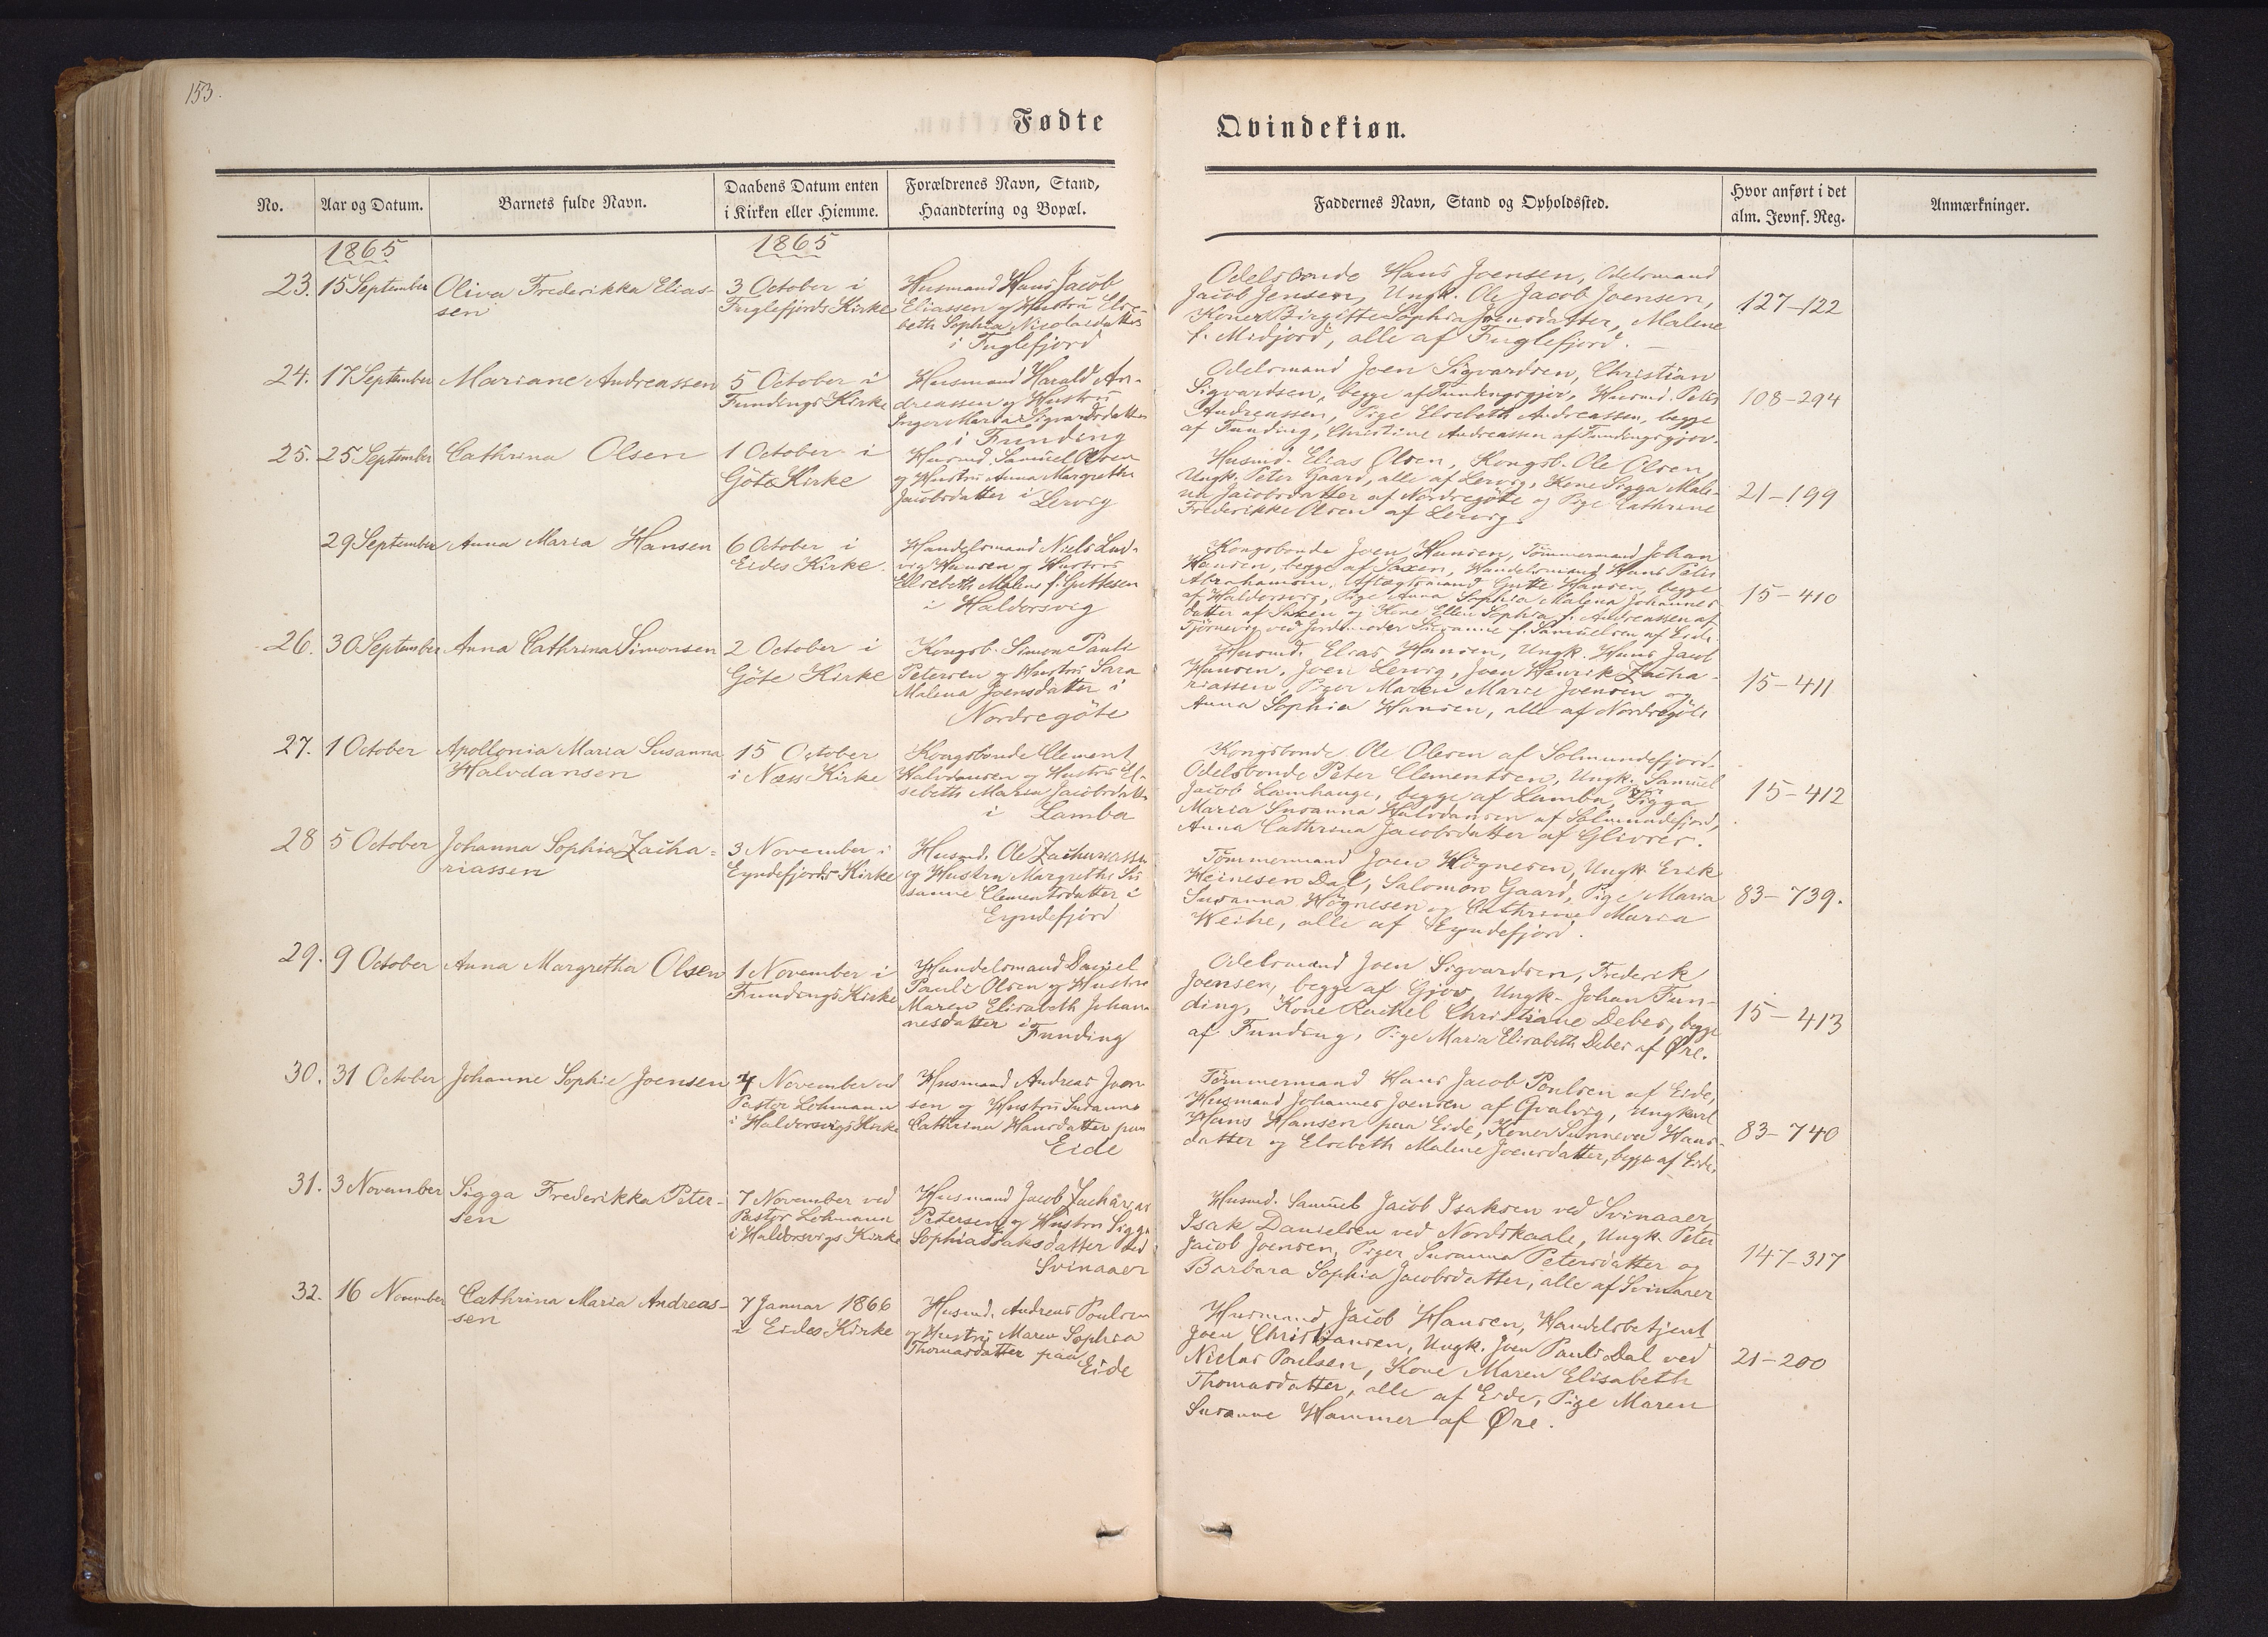 153.
Fødte
Qvindekiøn.
No.
Aar og Datum.
Barnets fulde Navn.
Daabens Datum enten
i Kirken eller Hiemme.
Forældrenes Navn, Stand,
Haandtering og Bopæl.
Faddernes Navn, Stand og Opholdssted.
Hvor anført i det
alm. Jevnf. Reg.
Anmærkninger.
1865
1865
23.
15 September
Oliva Frederikka Elias-
sen
3 October i
Fuglefjords Kirke
Husmand Hans Jacob
Eliassen og Hustru Else-
beth Sophia Nicolaidatter
i Fuglefjord
Odelsbonde Hans Joensen, Odelsmand
Jacob Jensen, Ungk. Ole Jacob Joensen,
Koner Birgitte Sophia Joensdatter, Malene
f. Midjord, alle af Fuglefjord.
127-122
24.
17 September
Mariane Andreassen
5 October i
Fundings Kirke
Husmand Harald An-
dreassen og Hustru
Inger Maria Sigvardsdatter
i Funding
Odelsmand Joen Sigvardsen, Christian
Sigvardsen, begge af Fundingsgjov, Husmd. Peter
Andreassen, Pige Elsebeth Andreassen, begge
af Funding, Christine Andreassen af Fundingsgjov.
108-294
25.
25 September
Cathrina Olsen
1 October i
Göte Kirke
Husmd. Samuel Olsen
og Hustru Anna Margretha
Jacobsdatter i Lervig
Husmd. Elias Olsen, Kongsb. Ole Olsen,
Ungk. Peter Gaard, alle af Lervig, Kone Sigga Male-
na Jacobsdatter af Nordregöte og Pige Cathrine
Frederikke Olsen af Lervig.
21-199
29 September
Anna Maria Hansen
6 October i
Eides Kirke.
Handelsmand Niels Lud-
vig Hansen og Hustru
Elsebeth Malene f. Guttesen
i Haldersvig
Kongsbonde Joen Hansen, Tömmermand Johan
Hansen, begge af Saxen, Handelsmand Hans Peter
Abrahamsen, Aftægtsmand Gutte Hansen, begge
af Haldersvig, Pige Anna Sophia Malena Johannes-
datter af Saxen og Kone Ellen Sophia f. Andreassen af
Tjörnevig ved Jordemoder Susanne f. Samuelsen af Eide.
15-410
26.
30 September
Anna Cathrina Simonsen
2 October i
Göte Kirke
Kongsb. Simon Pauli
Petersen og Hustru Sara
Malena Joensdatter i
Nordregöte
Husmd. Elias Hansen, Ungk. Hans Jacob
Hansen, Joen Lervig, Joen Henrik Zacha-
riassen, Piger Maren Marie Joensen og
Anna Sophia Hansen, alle af Nordregöte
15-411
27.
1 October
Apollonia Maria Susanna
Halvdansen
15 October
i Næss Kirke
Kongsbonde Clement
Halvdansen og Hustru El-
sebeth Maria Jacobsdatter
i Lamba
Kongsbonde Ole Olesen af Solmundefjord
Odelsbonde Peter Clementsen, Ungk. Samuel
Jacob Lamhauge, begge af Lamba, Sigga
Maria Susanna Halvdansen af Solmundefjord,
Anna Cathrina Jacobsdatter af Glivrer.
15-412
28
5 October
Johanna Sophia Zacha-
riassen
3 November i
Eyndefjords Kirke
Husmd. Ole Zachariassen
og Hustru Margretha Su
sanne Clementsdatter i
Eyndefjord
Tömmermand Joen Högnesen, Ungk. Erik
Heinesen Dal, Salomon Gaard, Pige Maria
Susanna Högnesen og Cathrine Maria
Weihe, alle af Eyndefjord.
83-739.
29.
9 October
Anna Margretha Olsen
1 November i
Fundings Kirke
Handelsmand Daniel
Pauli Olsen og Hustru
Maren Elisabeth Johan
nesdatter i
Funding
Odelsmand Joen Sigvardsen, Frederik
Joensen, begge af Gjov, Ungk. Johan Fun-
ding, Kone Rachel Christiane Debes, begge
af Funding, Pige Maria Elisabeth Debes af Øre.
15-413
30.
31 October
Johanne Sophie Joensen
4 November ved
Pastor Lohmann
i Haldersvigs Kirke
Husmand Andreas Joen
sen og Hustru Susanna
Cathrina Hansdatter paa
Eide
Tömmermand Hans Jacob Poulsen af Eide,
Husmand Johannes Joensen af Qvalvig, Ungkarl
Hans Hansen paa Eide, Koner Sunneva Hans-
datter og Elsebeth Malene Joensdatter, begge af Eide.
83-740
31.
3 November
Sigga Frederikka Peter-
sen
7 November ved
Pastor Lohmann
i Haldersvigs Kirke
Husmand Jacob Zacharias
Petersen og Hustru Sigga
Sophia Isaksdatter ved
Svinaaer
Husmd. Samuel Jacob Isaksen ved Svinaaer,
Isak Danielsen ved Nordskaale, Ungk. Peter
Jacob Joensen, Piger Susanna Petersdatter og
Barbara Sophia Jacobsdatter, alle af Svinaaer
147-317
32.
16 November
Cathrina Maria Andreas-
sen
7 Januar 1866
i Eides Kirke
Husmd. Andreas Poulsen
og Hustru Maren Sophia
Thomasdatter paa
Eide
Husmand Jacob Hansen, Handelsbetjent
Joen Christiansen, Ungk. Joen Pauli Dal ved
Niclas Poulsen, Kone Maren Elisabeth
Thomasdatter, alle af Eide, Pige Maren
Susanne Hammer af Øre.
21-200